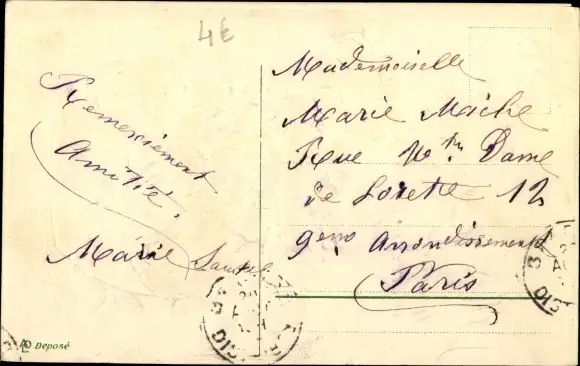 4€
Remerciement
Amitié.
Marie
Mademoiselle
Marie
Rue Nte. Dame
de Lorette 12
9eme Arrondissement
Paris
Deposé